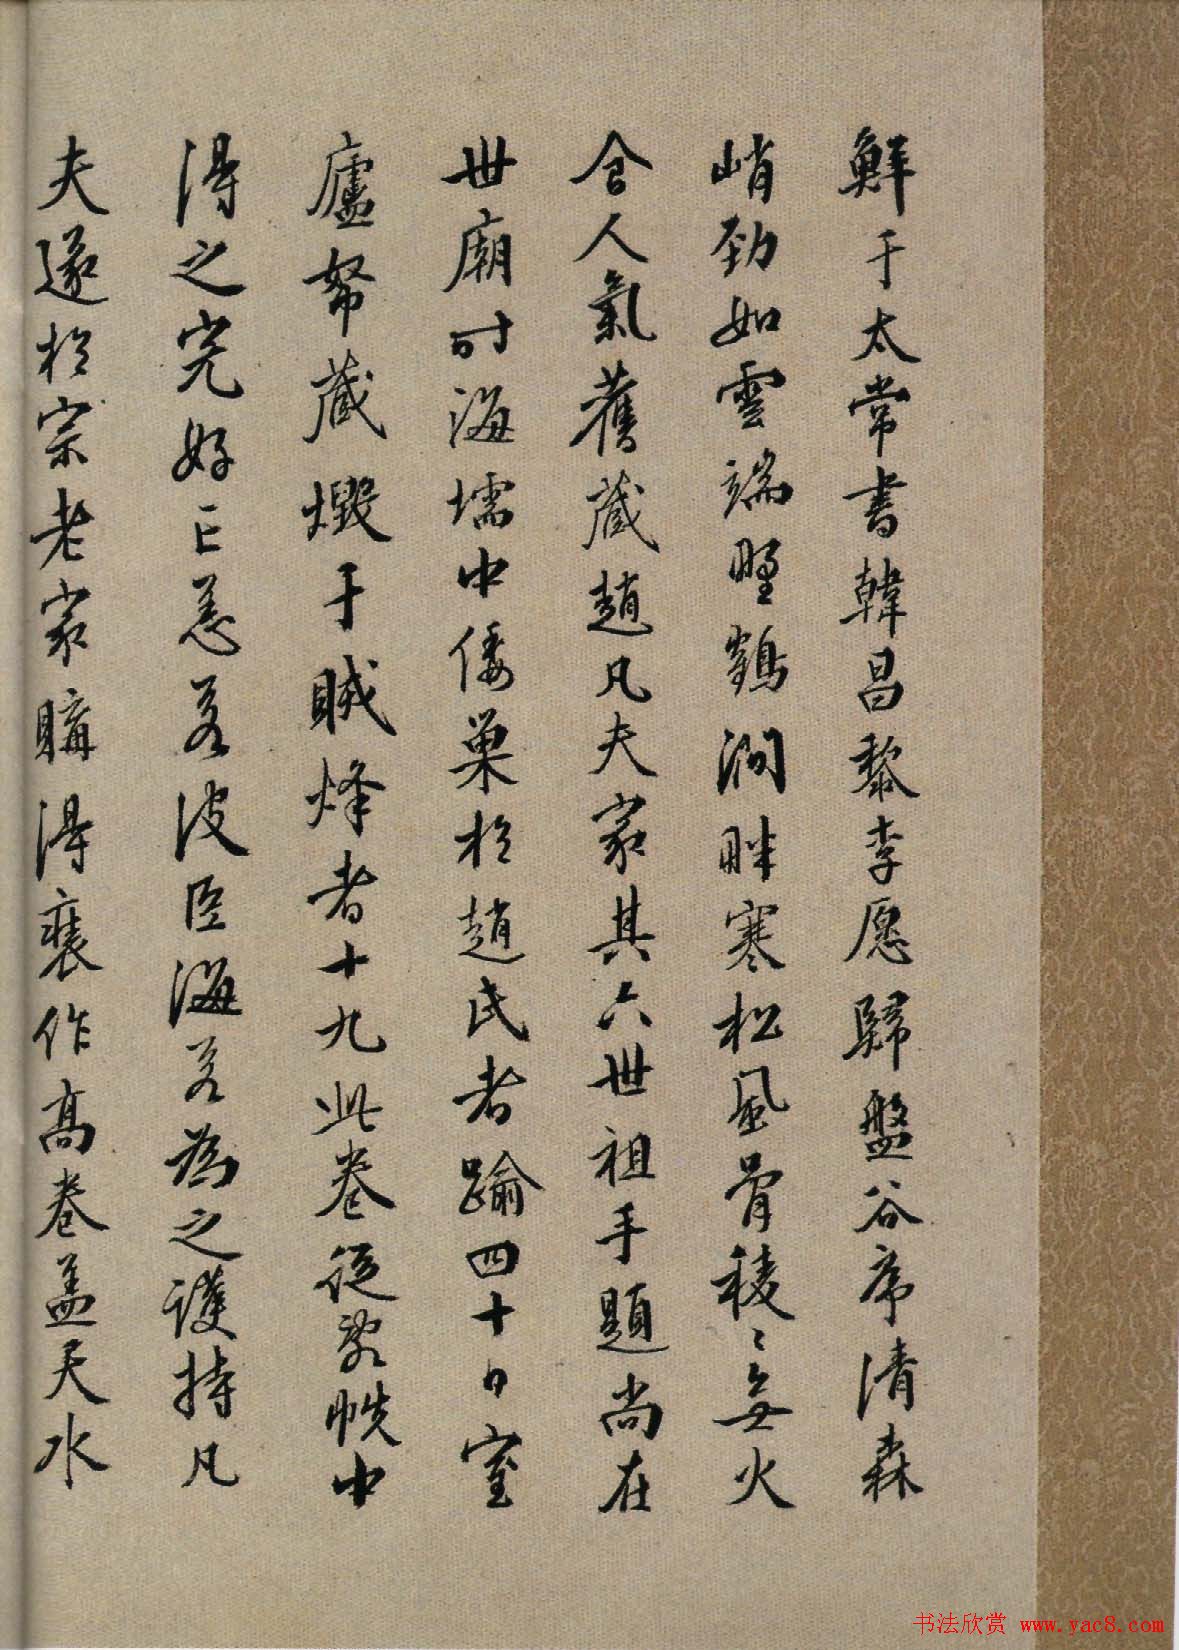 鮮于太常書韓昌黎李愿歸盤谷序清森
峭勁如雲端野鶴澗畔寒松風骨稜〻無火
食人氣舊藏趙凡夫家其六世祖手題尚在
世廟時海壖中倭巢於趙氏者踰四十日室
廬帑藏燬于賊烽者十九此卷從敗帙中
得之完好亡恙若波臣海若為之護持凡
夫遂於宗老家購得裝作高卷盖天水
书法欣赏 www.yac8.com